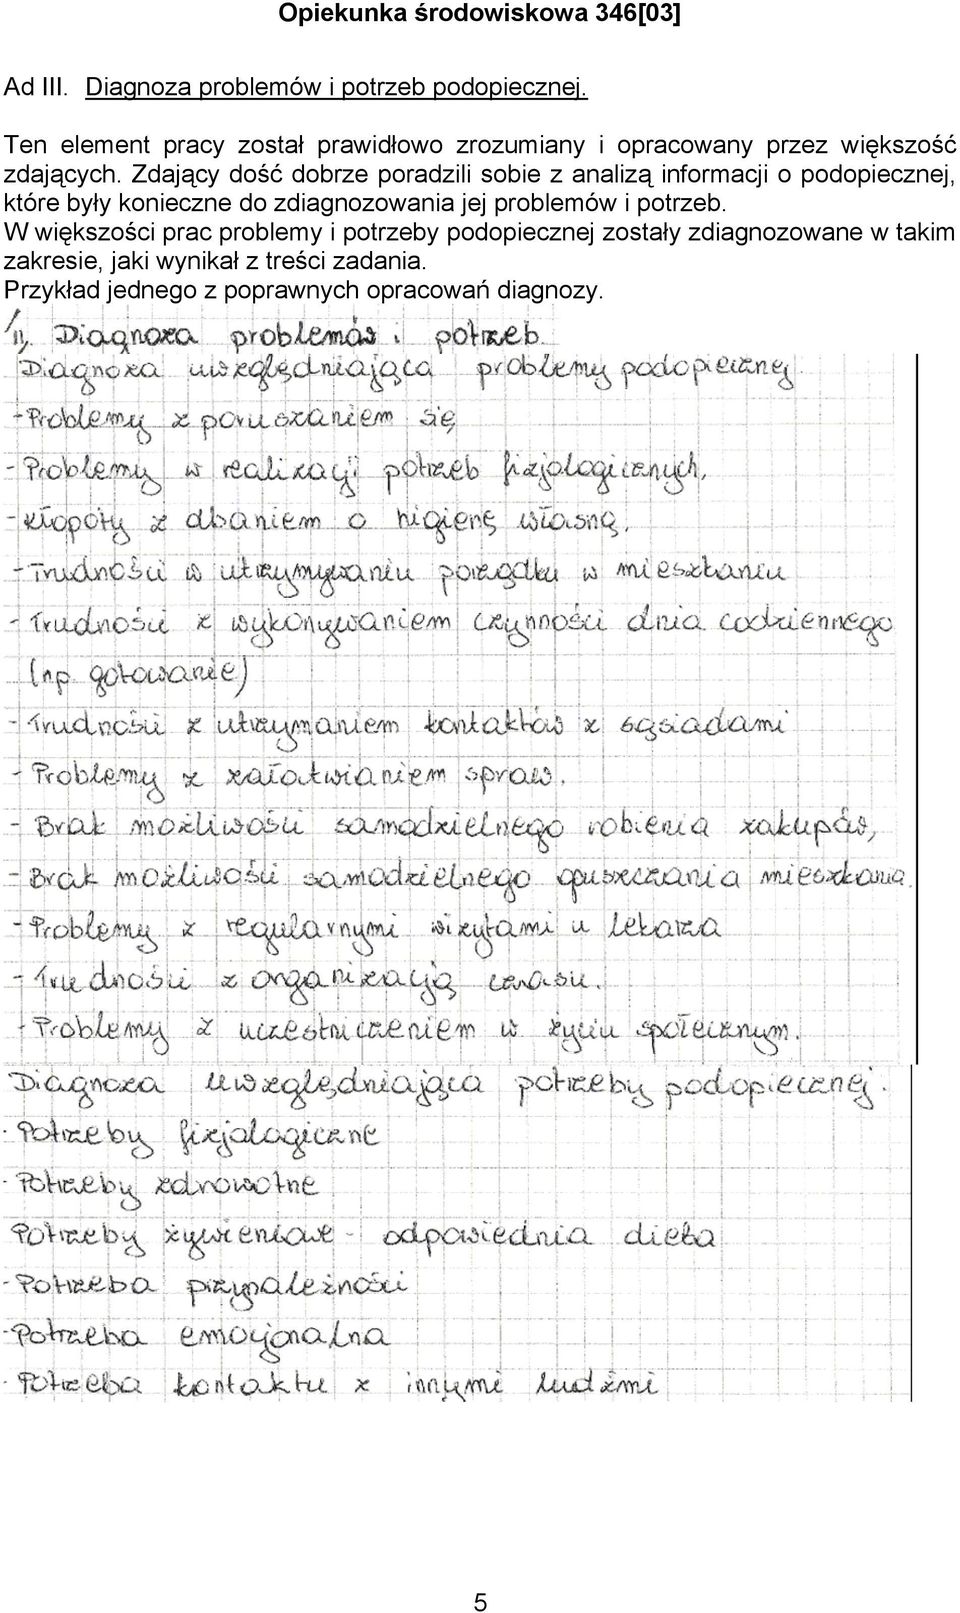 Opiekunka środowiskowa 346[03]
Ad III. Diagnoza problemów i potrzeb podopiecznej.
Ten element pracy został prawidłowo zrozumiany i opracowany przez większość
zdających. Zdający dość dobrze poradzili sobie z analizą informacji o podopiecznej,
które były konieczne do zdiagnozowania jej problemów i potrzeb.
W większości prac problemy i potrzeby podopiecznej zostały zdiagnozowane w takim
zakresie, jaki wynikał z treści zadania.
Przykład jednego z poprawnych opracowań diagnozy.
Diagnoza problemów i potrzeb
Diagnoza uwzględniająca problemy podopiecznej.
- Problemy z poruszaniem się,
- Problemy w realizacji potrzeb fizjologicznych,
- kłopoty z dbaniem o higienę własną,
- Trudności w utrzymywaniu porządku w mieszkaniu
- Trudności z wykonywaniem czynności dnia codziennego
(np. gotowanie)
- Trudności z utrzymaniem kontaktów z sąsiadami
- Problemy z załatwianiem spraw.
- Brak możliwości samodzielnego robienia zakupów,
- Brak możliwości samodzielnego opuszczania mieszkania.
- Problemy z regularnymi wizytami u lekarza
- Trudności z organizacją czasu.
- Problemy z uczestniczeniem w życiu społecznym.
Diagnoza uwzględniająca potrzeby podopiecznej.
- Potrzeby fizjologiczne
- Potrzeby zdrowotne
Potrzeby żywieniowe - odpowiednia dieta
- Potrzeba przynależności
- Potrzeba emocjonalna
- Potrzeba kontaktu z innymi ludźmi
5